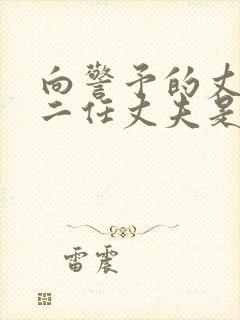 向警予的丈
二任丈夫是
雷震